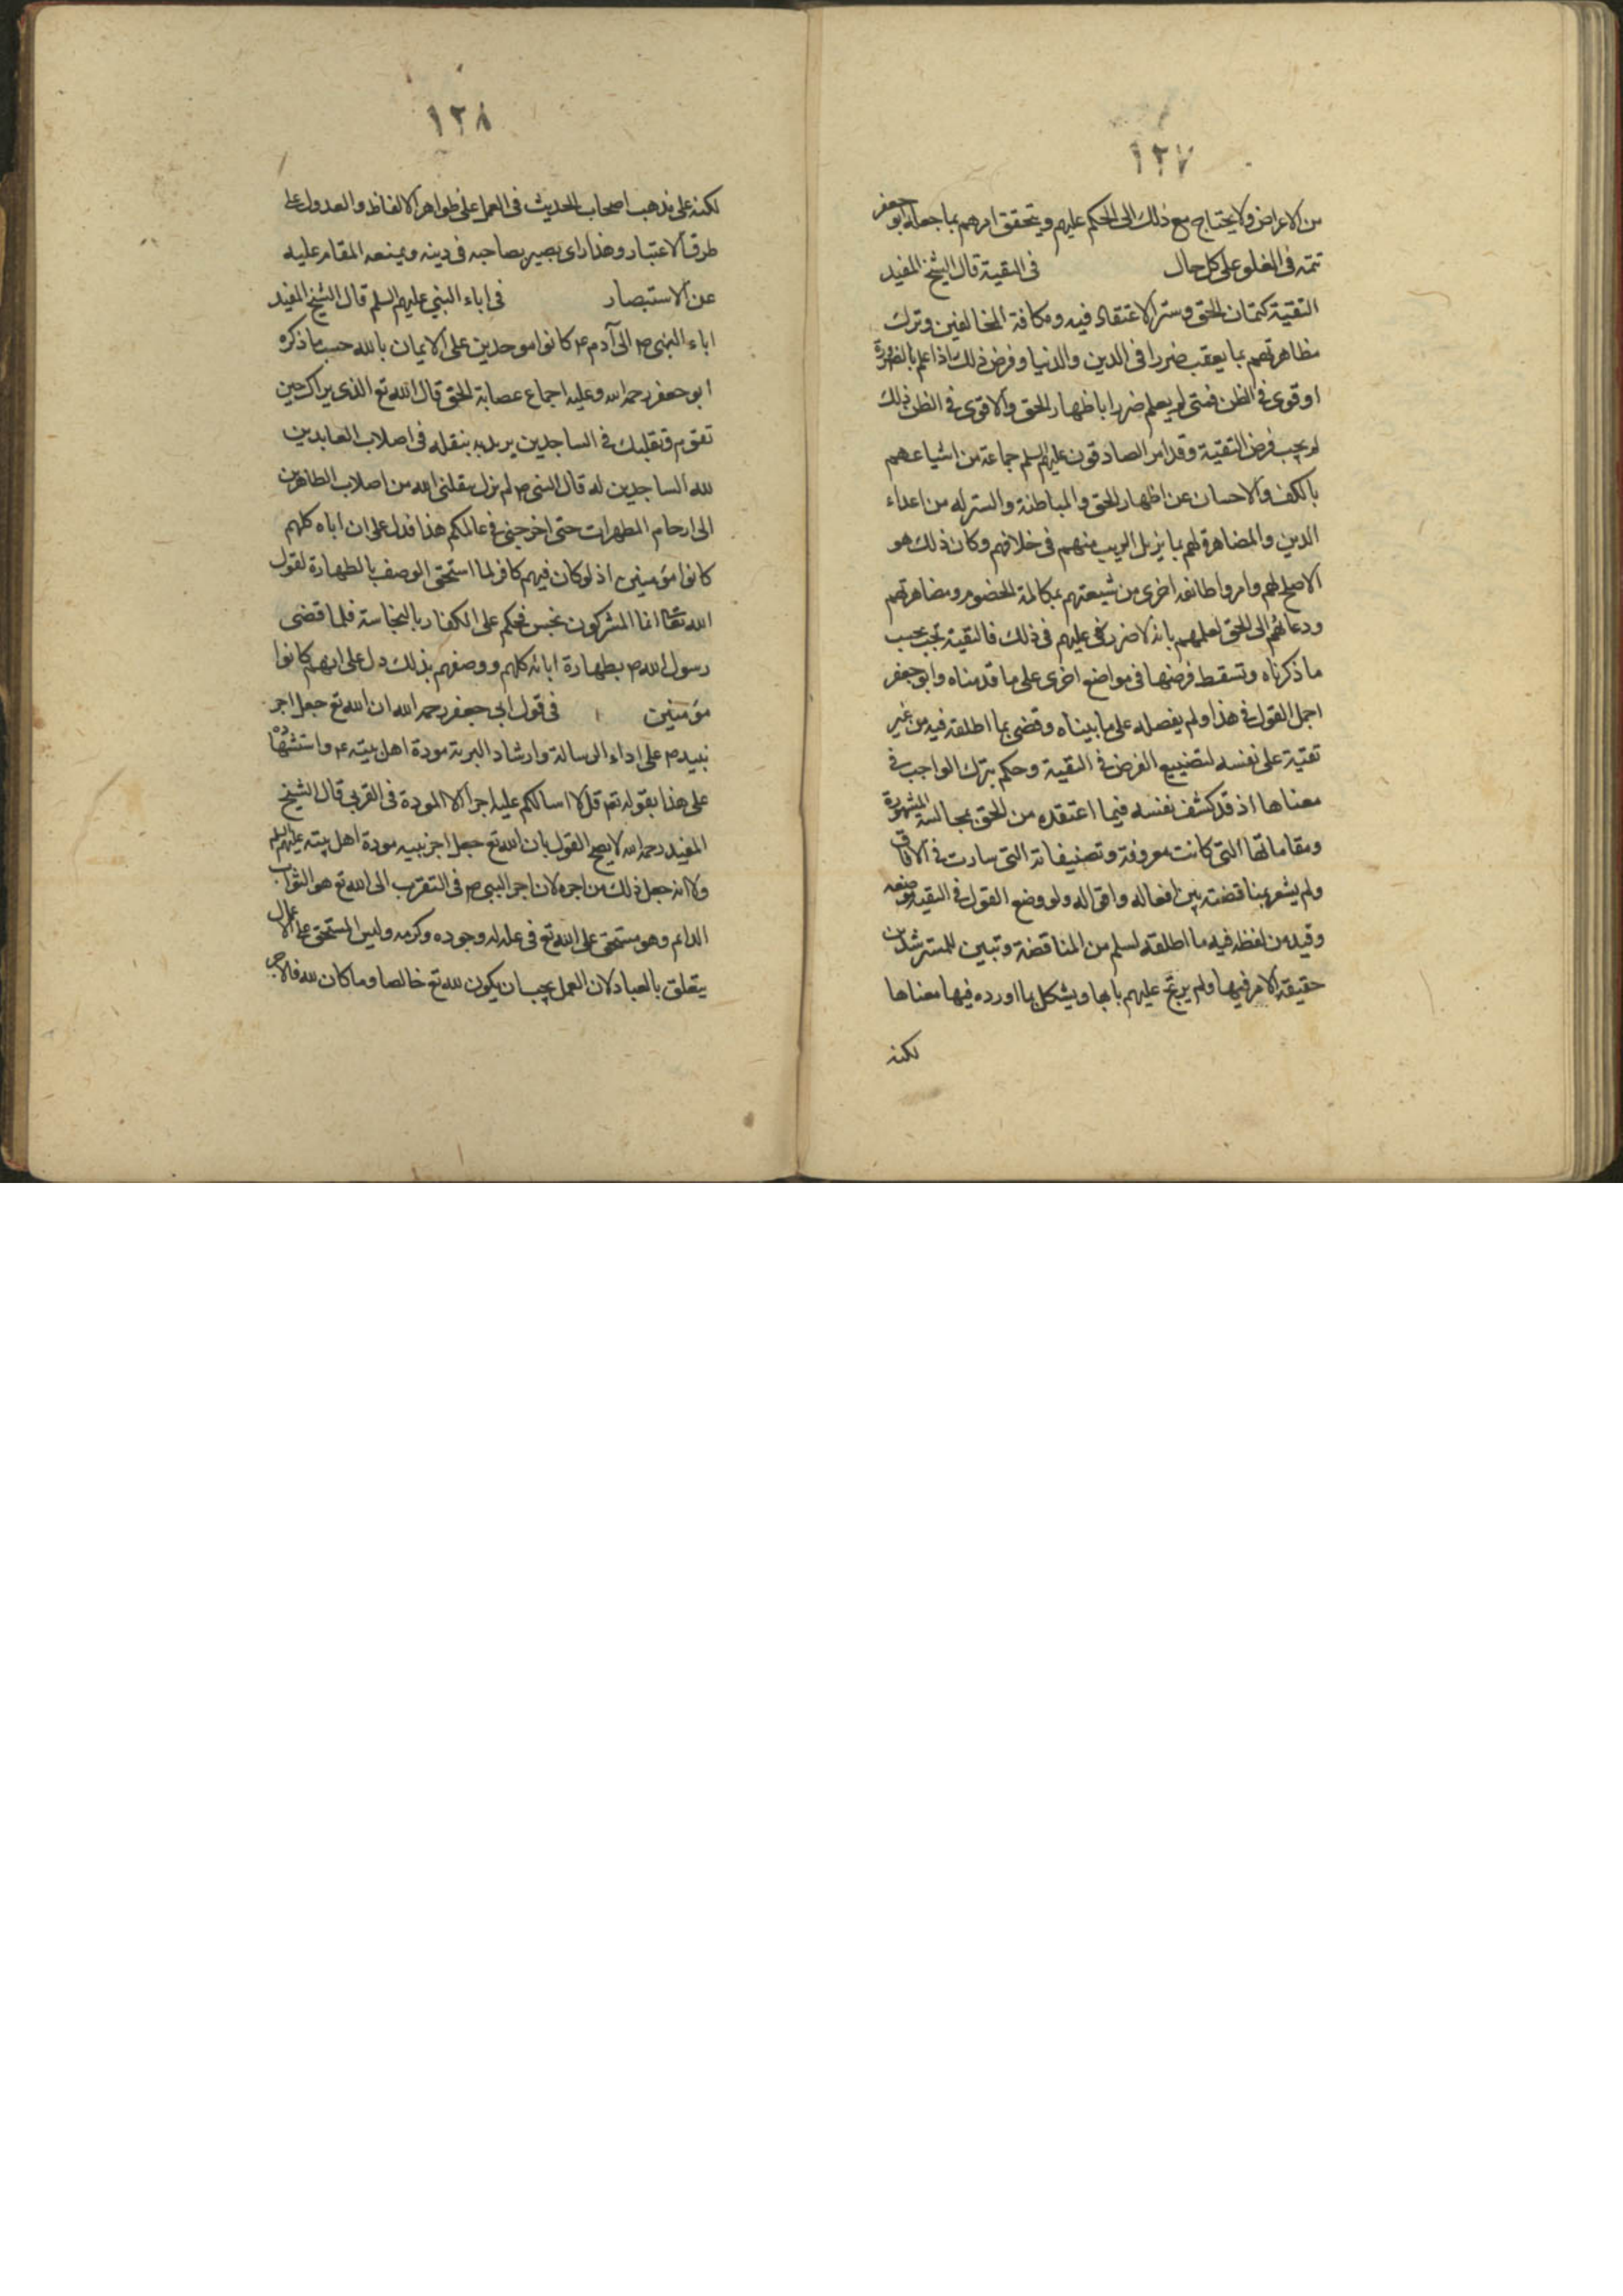 ١٢٧
من الاعراض ولا يحتاج مع ذلك الى الحكم عليهم ويتحقق امرهم بما جعله ابو جعفر
تتمه فى الغلو على كل حال فى التقية قال الشيخ المفيد
التقية كتمان الحق وستر الاعتقاد فيه ومكافة المخالفين وترك
مظاهرتهم بما يعقب ضررا فى الدين والدنيا وفرض ذلك اذا علم بالضرورة
او قوى فى الظن فمتى لم يعلم ضررا باظهار الحق والاقوى فى الظن ذلك
لم يجب فرض التقية وقد امر الصادقون عليهم السلم جماعة من اشياعهم
بالكف والاحسان عن اظهار الحق والمباطنة والستر له من اعداء
الدين والمضاهرة لهم بما يزيل الريب منهم فى خلافهم وكان ذلك هو
الاصلح لهم وامروا طائفه اخرى من شيعتهم بمكالمة الخصوم ومضاهرتهم
ودعائهم الى الحق لعلمهم بانه لا ضرر فى عليهم فى ذلك فالتقية تجب بحسب
ما ذكرناه وتسقط فرضها فى مواضع اخرى على ما قدمناه وابو جعفر
اجمل القول فى هذا ولم يفصله على ما بيناه وقضى بما اطلقه فيه من غير
تقية على نفسه لتضييع الفرض فى التقية وحكم بترك الواجب فى
معناها اذ قد كشف نفسه فيما اعتقده من الحق بمجالسه المشهورة
ومقاماتها التى كانت معروفة وتصنيفاته التى سارت فى الافاق
ولم يشعر بمناقضته بين افعاله واقواله ولو وضع القول فى التقيه موضعه
وقيد من لفظه فيه ما اطلقه لسلم من المناقضة وتبين للمسترشدين
حقيقة الامر فيها ولم يرتج عليهم بابها ويشكل بما اورده فيها معناها
لكنه
١٢٨
لكنه على مذهب اصحاب الحديث فى العمل على ظواهر الالفاظ والعدول على
طرق الاعتبار وهذا راى يصير بصاحبه فى دينه ويمنعه المقام عليه
عن الاستبصار فى اباء النبي عليهم السلم قال الشيخ المفيد
اباء النبى ص الى آدم ع كانوا موحدين على الايمان بالله حسب ما ذكره
ابو جعفر رحمه الله وعليه اجماع عصابة الحق قال الله تع الذى يراك حين
تقوم وتقلبك فى الساجدين يريد به بنقله فى اصلاب العابدين
لله الساجدين له قال النبى ص لم يزل ينقلنى الله من اصلاب الطاهرين
الى ارحام المطهرات حتى اخرجنى فى عالمكم هذا فدل على ان اباه كلهم
كانوا مؤمنين اذ لو كان فيهم كافر لما استحق الوصف بالطهارة لقول
الله تعالى انما المشركون نجس فحكم على الكفار بالنجاسة فلما قضى
رسول الله ص بطهارة ابائه كلهم ووصفهم بذلك دل على انهم كانوا
مؤمنين فى قول ابى جعفر رحمه الله ان الله تع جعل اجر
نبيه ص على اداء الرسالة وارشاد البرية مودة اهل بيته ع واستشهاده
على هذا بقوله تع قل لا اسالكم عليه اجرا الا المودة فى القربى قال الشيخ
المفيد رحمه الله لا يصح القول بان الله تع جعل اجر نبيه مودة اهل بيته عليهم السلم
ولا انه جعل ذلك من اجره لان اجر النبى ص فى التقرب الى الله تع هو الثواب
الدائم وهو مستحق على الله تع فى عدله وجوده وكرمه وليس المستحق على الاعمال
يتعلق بالعباد لان العمل يجب ان يكون لله تع خالصا وما كان لله فالاجر